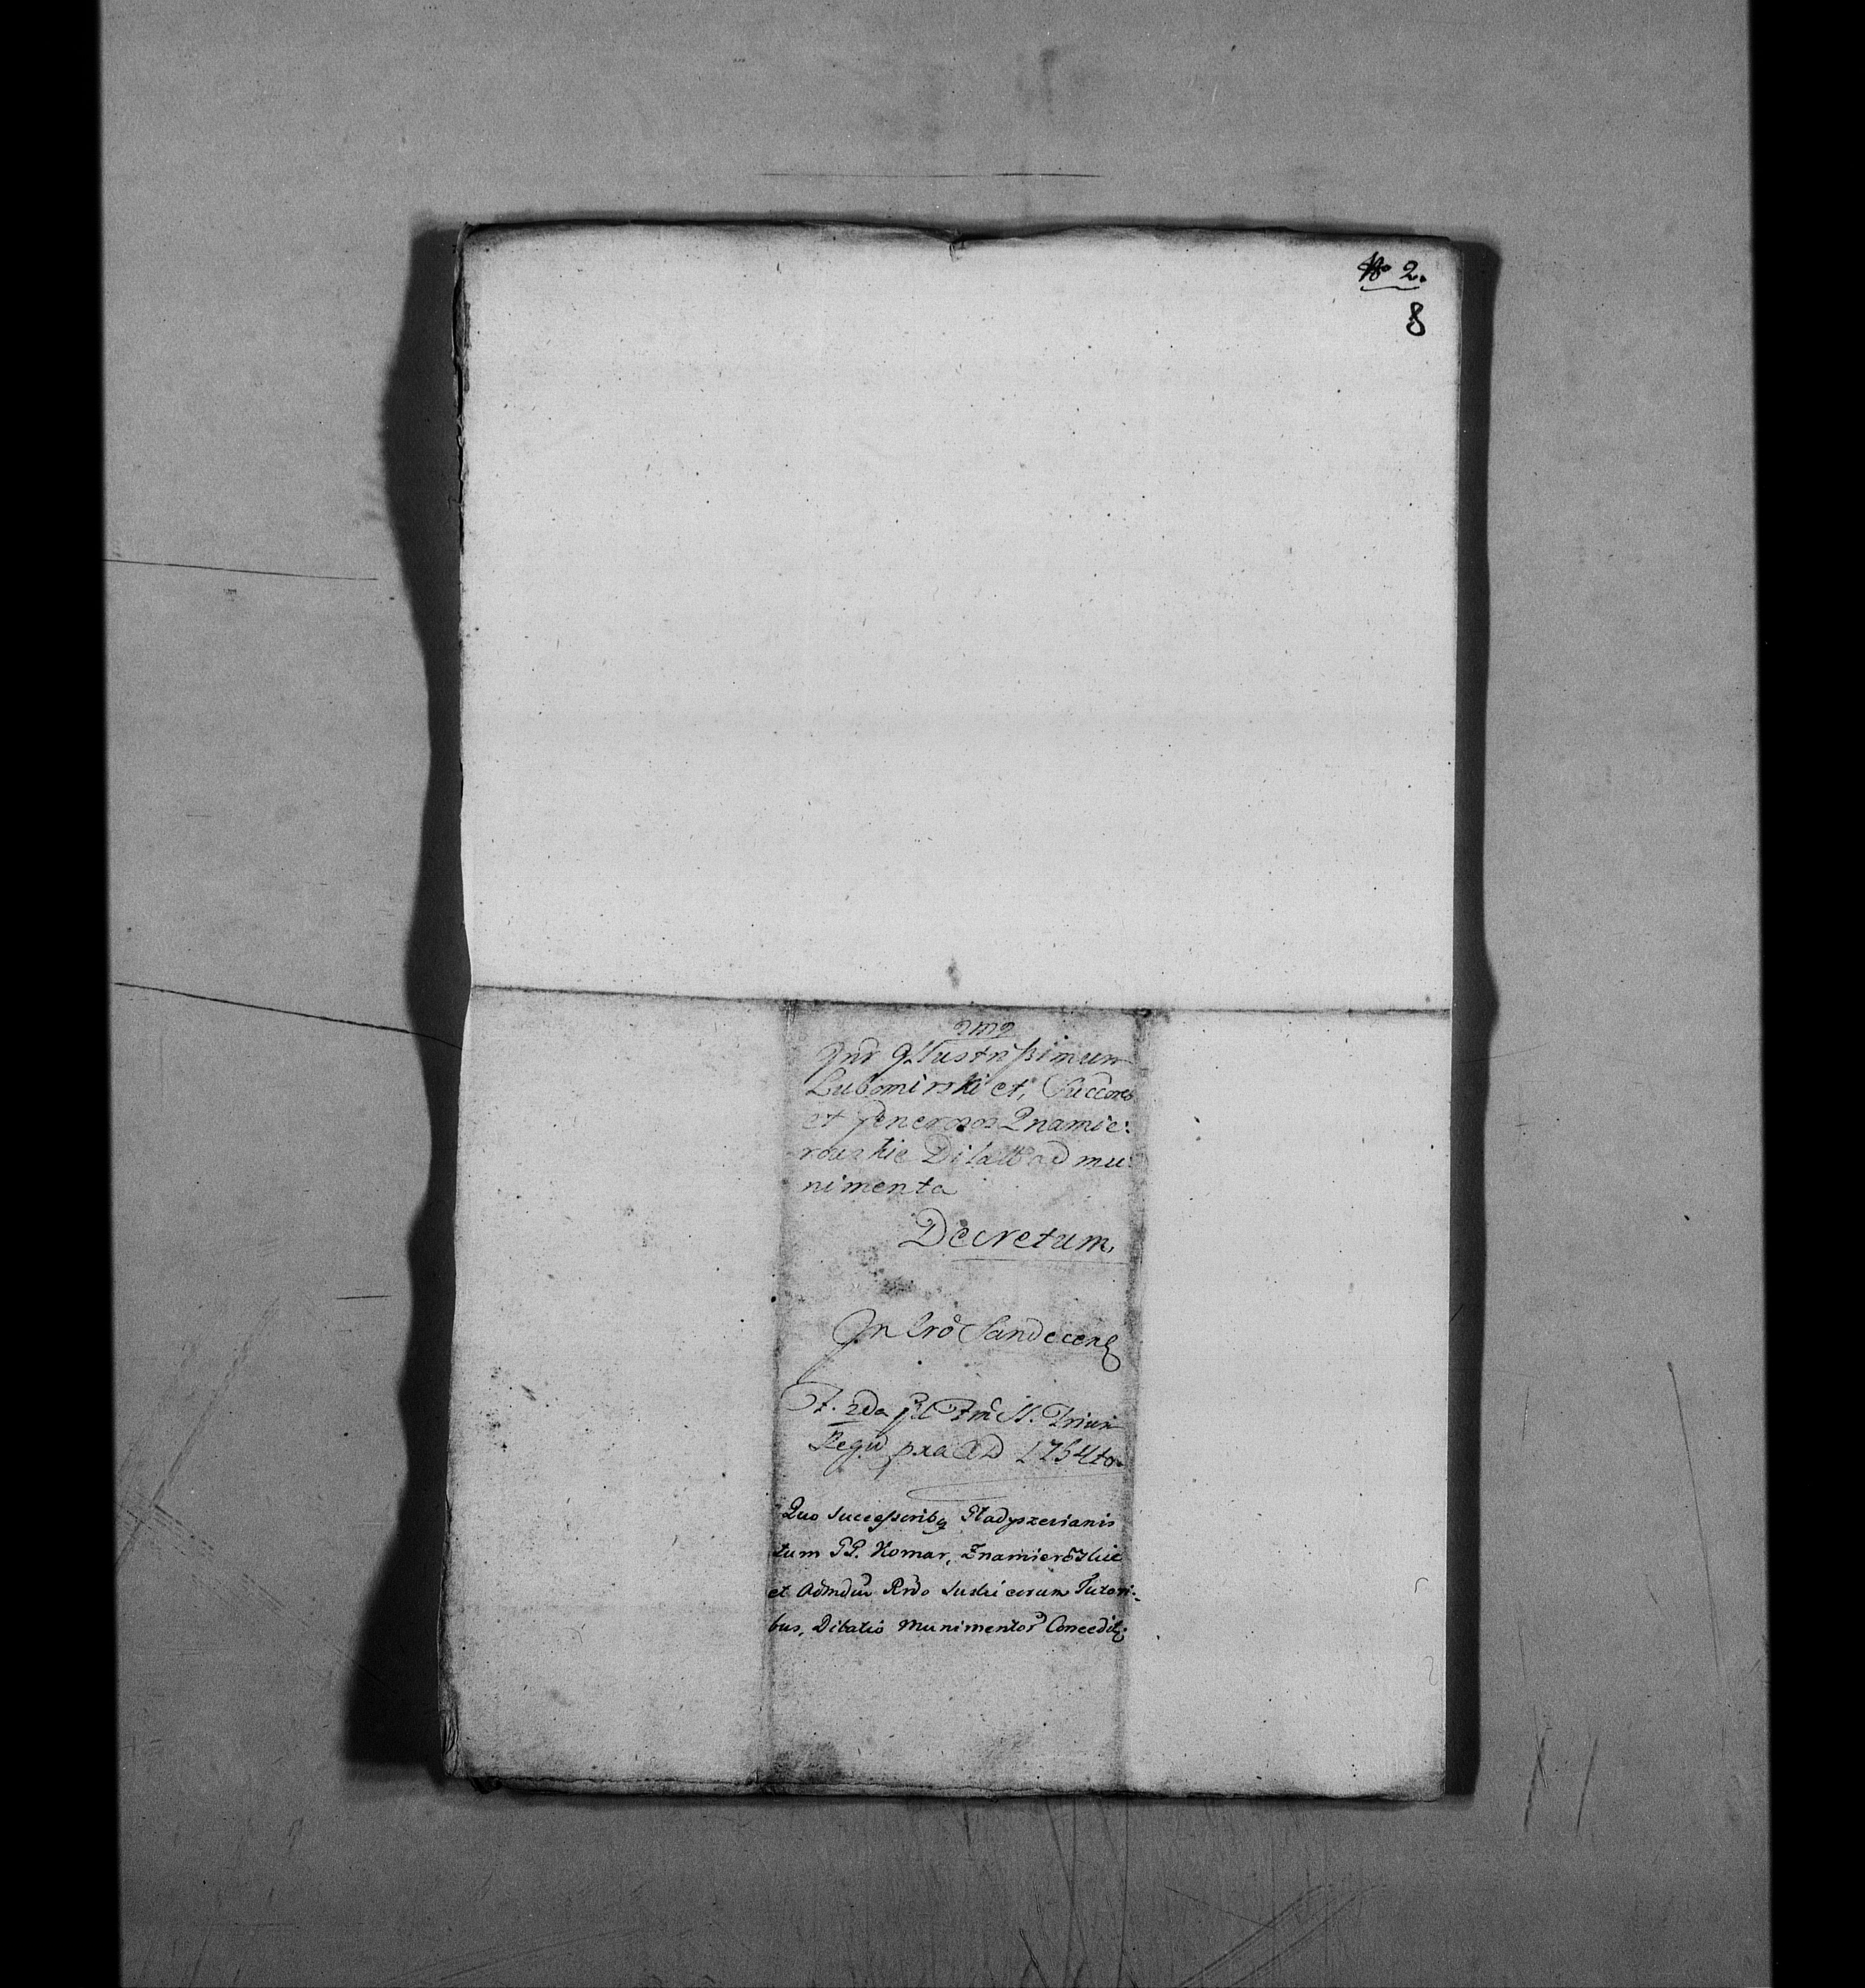 No 2.
8
Inr Illustrissimum
Lubomirski et, Succores
et Generosos Znamie:
rowskie Dilatt ad mu:
nimenta
Decretum.
In Cro Sandecens
F. 2da Tm SS. Trium
Regu pxa AD 1754to
Quo Successoribq Gładyszerianis
tum GG. Komar, Znamierõskie
et Admdũ Rndo Suski corum Tutori:
bus, Dilatio Munimentor Conceditr.